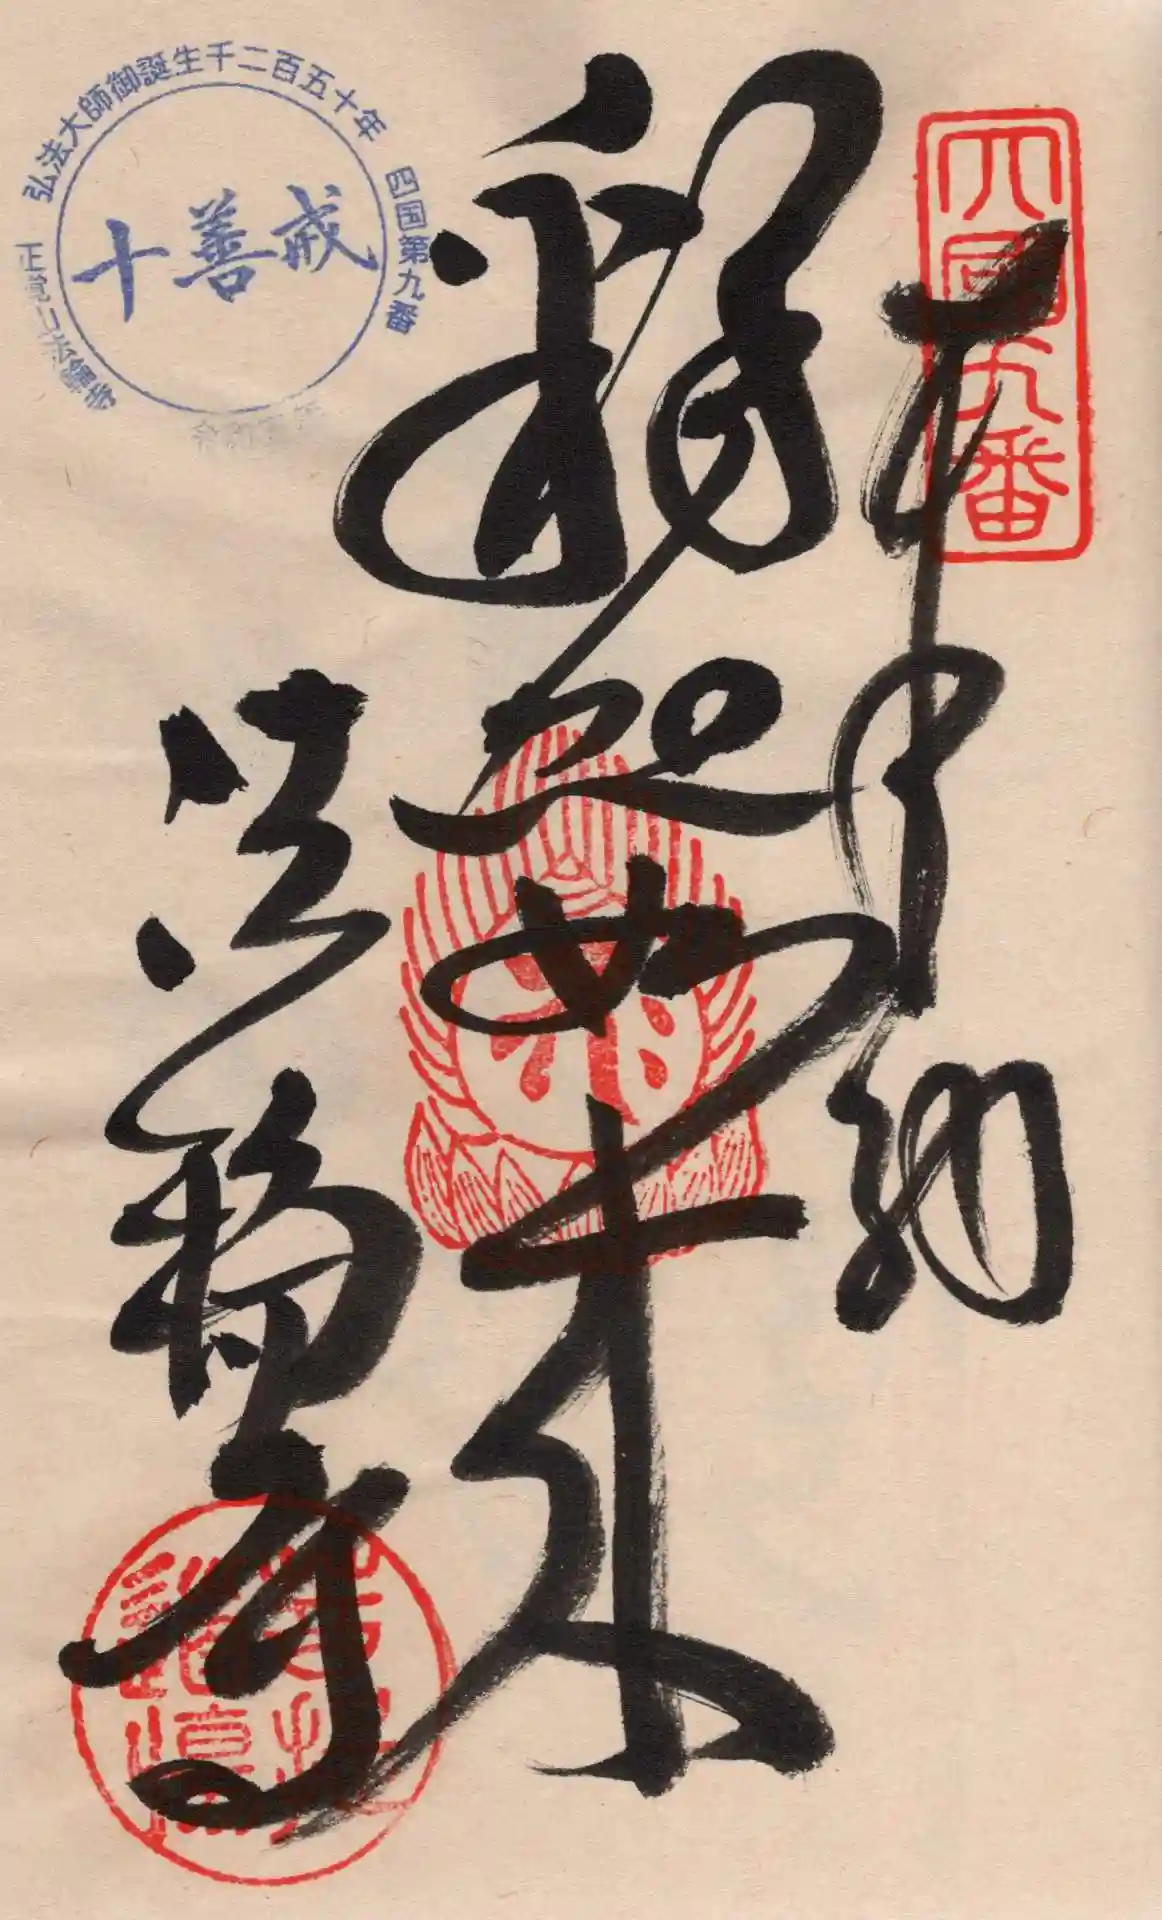 四國九番
奉納
釋迦如来
法輪寺
弘法大師御誕生千二百五十年
四国第九番
正覚山法輪寺
十善戒